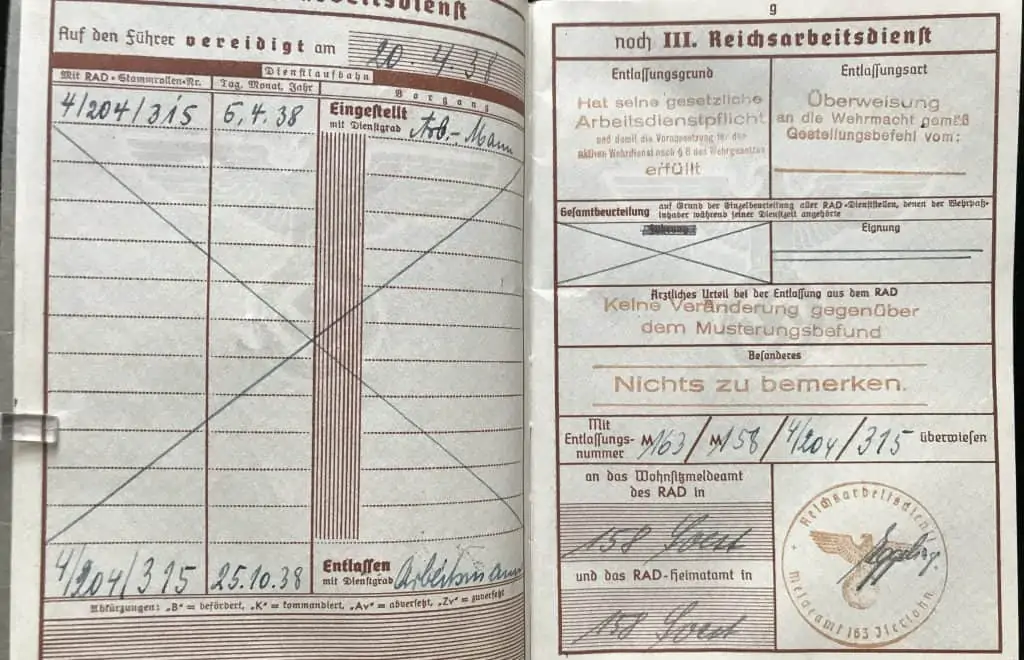 Arbeitsdienst
Auf den Führer vereidigt am 20.4.38
Dienstlaufbahn
Mit RAD-Stammrollen-Nr. Tag, Monat, Jahr Vorgang
4/204/315 6.4.38 Eingestellt
mit Dienstgrad Arb.-Mann
4/204/315 25.10.38 Entlassen
mit Dienstgrad Arbeitsmann
Abkürzungen: „B“ = befördert, „K“ = kommandiert, „Av“ = abversetzt, „Zv“ = zuversetzt
9
noch III. Reichsarbeitsdienst
Entlassungsgrund
Hat seine gesetzliche
Arbeitsdienstpflicht
und damit die Voraussetzung für den
aktiven Wehrdienst nach § 8 des Wehrgesetzes
erfüllt
Entlassungsart
Überweisung
an die Wehrmacht gemäß
Gestellungsbefehl vom:
Gesamtbeurteilung auf Grund der Einzelbeurteilung aller RAD-Dienststellen, denen der Wehrpaß-
inhaber während seiner Dienstzeit angehörte
Eignung
Ärztliches Urteil bei der Entlassung aus dem RAD
Keine Veränderung gegenüber
dem Musterungsbefund
Besonderes
Nichts zu bemerken.
Mit
Entlassungs-
nummer M/163/M/158/4/204/315 überwiesen
an das Wohnsitzmeldeamt
des RAD in
158 Soest
und das RAD-Heimatamt in
158 Soest
Reichsarbeitsdienst
Meldeamt 163 Iserlohn